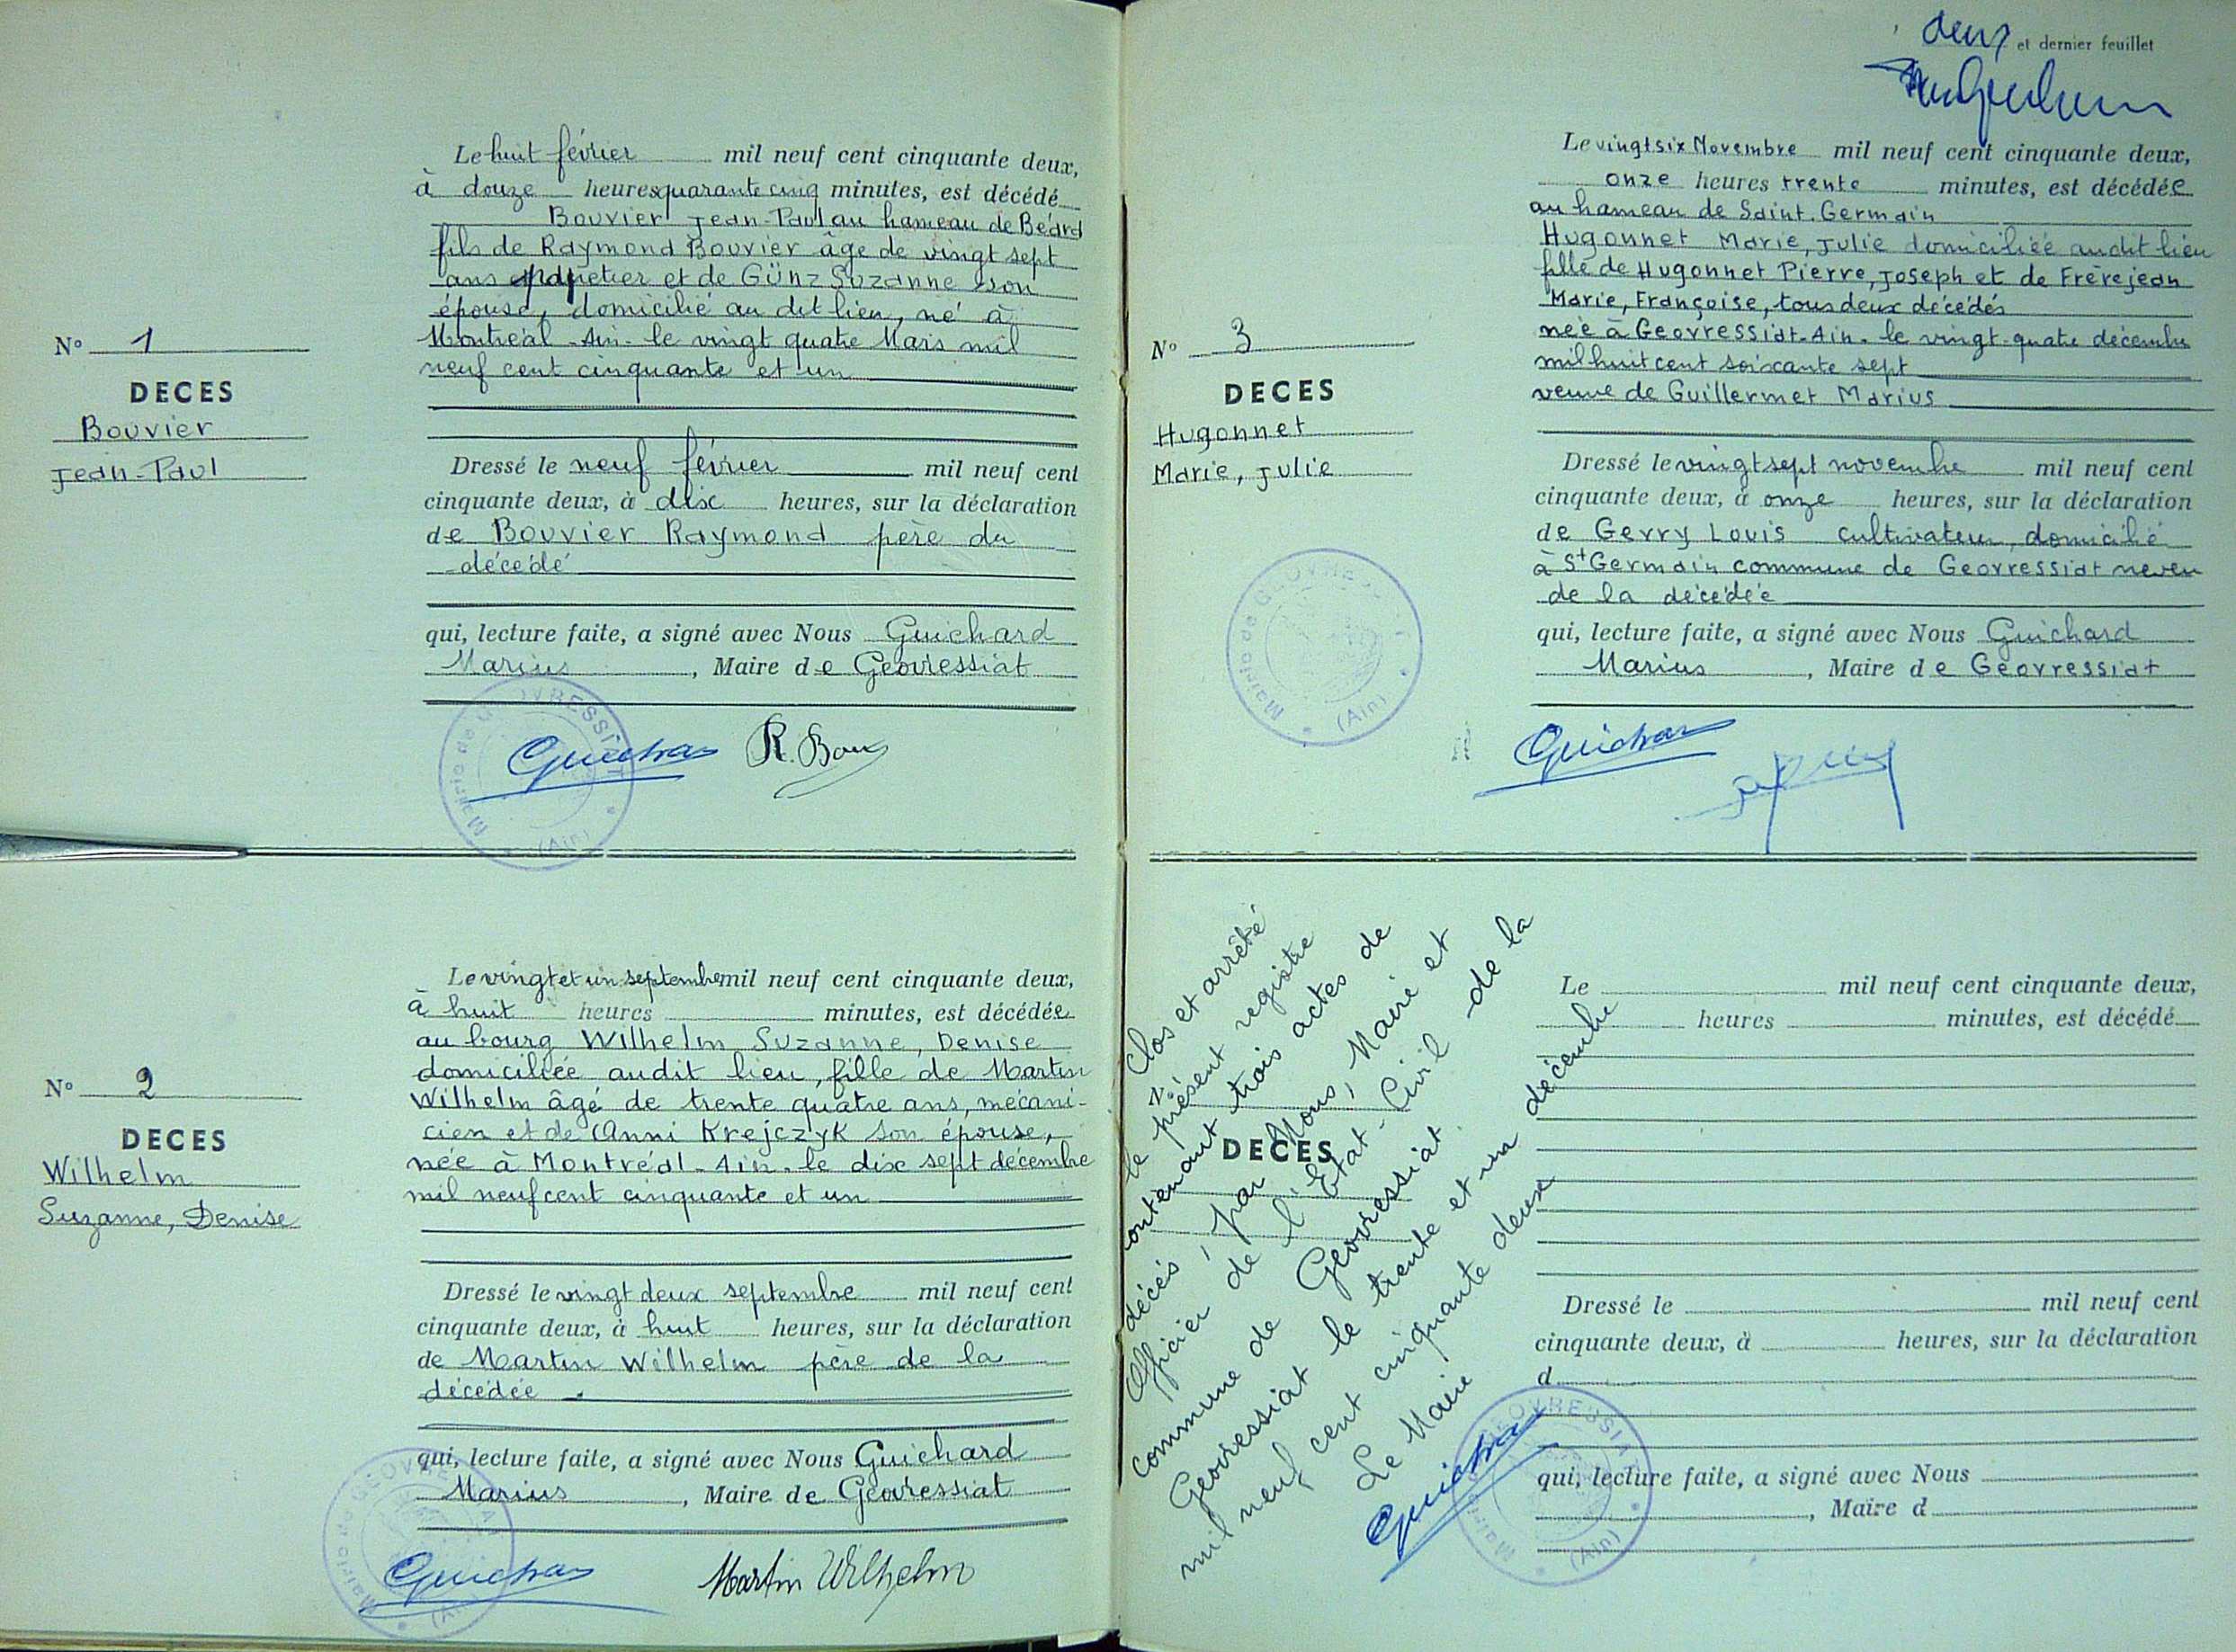 N° 1
DECES
Bouvier
Jean-Paul
Le huit février mil neuf cent cinquante deux,
à douze heures quarante cinq minutes, est décédé
Bouvier Jean-Paul au hameau de Béard
fils de Raymond Bouvier âge de vingt sept
ans papetier et de Günz Suzanne son
épouse, domicilié au dit lieu, né à
Montréal-Ain- le vingt quatre Mars mil
neuf cent cinquante et un
Dressé le neuf février mil neuf cent
cinquante deux, à dix heures, sur la déclaration
de Bouvier Raymond père du
décédé
qui, lecture faite, a signé avec Nous Guichard
Marius, Maire de Geovressiat
Mairie de GEOVRESSIAT (Ain)
Guichar R. Bou
N° 2
DECES
Wilhelm
Suzanne, Denise
Le vingt et un septembre mil neuf cent cinquante deux,
à huit heures minutes, est décédée
au bourg Wilhelm Suzanne, Denise
domiciliée audit lieu, fille de Martin
Wilhelm âgé de trente quatre ans, mécani-
cien et de Anni Krejczyk son épouse,
née à Montréal-Ain- le dix sept décembre
mil neuf cent cinquante et un
Dressé le vingt deux septembre mil neuf cent
cinquante deux, à huit heures, sur la déclaration
de Martin Wilhelm père de la
décédée
qui, lecture faite, a signé avec Nous Guichard
Marius, Maire de Geovressiat
Mairie de GEOVRESSIAT (Ain)
Guichar Martin Wilhelm
deux et dernier feuillet
N° 3
DECES
Hugonnet
Marie, Julie
Mairie de GEOVRESSIAT (Ain)
Le vingt six Novembre mil neuf cent cinquante deux,
onze heures trente minutes, est décédée
au hameau de Saint-Germain
Hugonnet Marie, Julie domiciliée audit lieu
fille de Hugonnet Pierre, Joseph et de Frèrejean
Marie, Françoise, tous deux décédés
née à Geovressiat-Ain- le vingt-quatre décembre
mil huit cent soixante sept
veuve de Guillermet Marius
Dressé le vingt sept novembre mil neuf cent
cinquante deux, à onze heures, sur la déclaration
de Gevry Louis cultivateur, domicilié
à St Germain commune de Geovressiat neveu
de la décédée
qui, lecture faite, a signé avec Nous Guichard
Marius, Maire de Geovressiat
Guichar
Clos et arrêté
le présent registre
contenant trois actes de
décès, par Nous, Maire et
Officier de l'Etat-Civil de la
commune de Geovressiat.
Geovressiat le trente et un décembre
mil neuf cent cinquante deux
Le Maire
Guichar
N°
DECES
Le mil neuf cent cinquante deux,
heures minutes, est décédé
Dressé le mil neuf cent
cinquante deux, à heures, sur la déclaration
d
qui, lecture faite, a signé avec Nous
, Maire d
Mairie de GEOVRESSIAT (Ain)